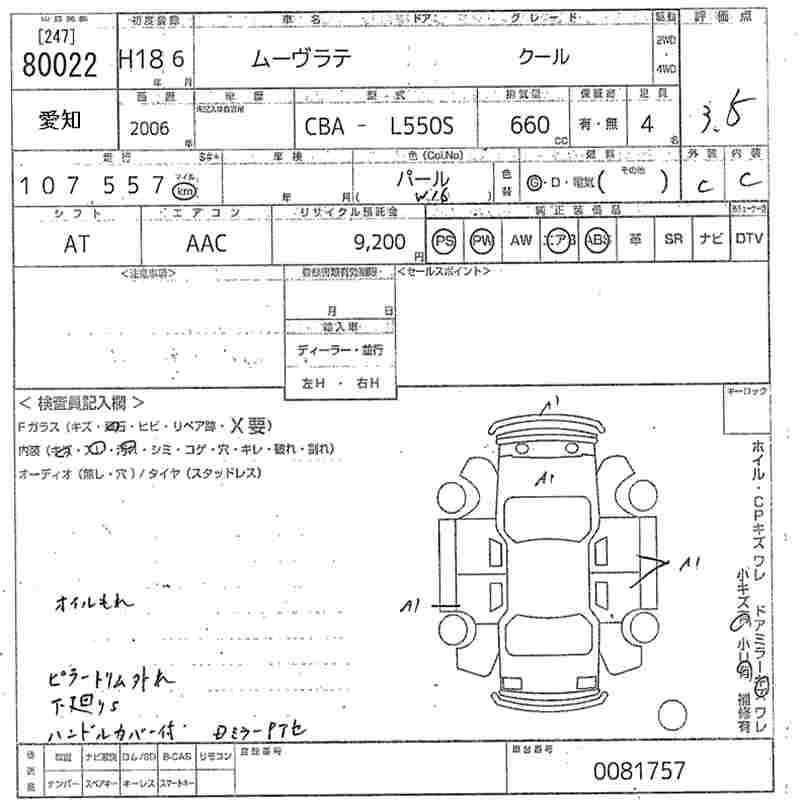 [247]
初度登録 車名 ドア グレード 駆動 評価点
80022 H18年 6月 ムーヴラテ クール 2WD・4WD 3.5
愛知 2006年 型式 排気量 保証書 定員
CBA - L550S 660cc 有・無 4名
走行 S#* 車検 色(Col.No) 色替 燃料 外装 内装
107 557 マイル km 年 月 パール ( W16 ) G・D・電気 ( その他 ) C C
シフト エアコン リサイクル預託金 純正装備品
AT AAC 9,200円 PS PW AW エアB ABS 革 SR ナビ DTV
<注意事項> <セールスポイント>
月 日
輸入車
ディーラー・並行
左H ・ 右H
< 検査員記入欄 > キーロック
Fガラス (キズ・飛石・ヒビ・リペア跡・X要)
内装 (キズ・スレ・汚れ・シミ・コゲ・穴・キレ・破れ・割れ)
オーディオ (無し・穴) / タイヤ (スタッドレス)
A1
A1
A1
A1
ホイル・CPキズワレ ドアミラーキズワレ
小キズ有 小凹有 補修有
オイルもれ
ピラートリム外れ
下廻りS
ハンドルカバー付 Dミラーアセ
取説 ナビ取説 ロム/SD B-CAS リモコン 登録番号 車台番号
ナンバー スペアキー キーレス スマートキー 0081757